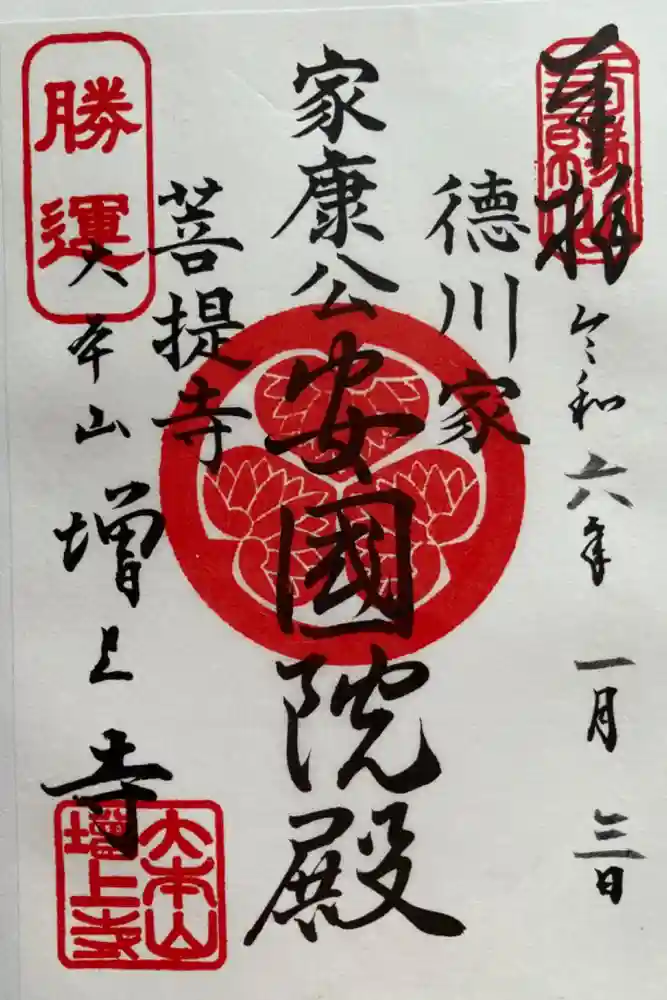 奉拝
令和六年一月三日
徳川家
家康公
安國院殿
菩提寺
勝運
大本山
増上寺
大本山
増上寺